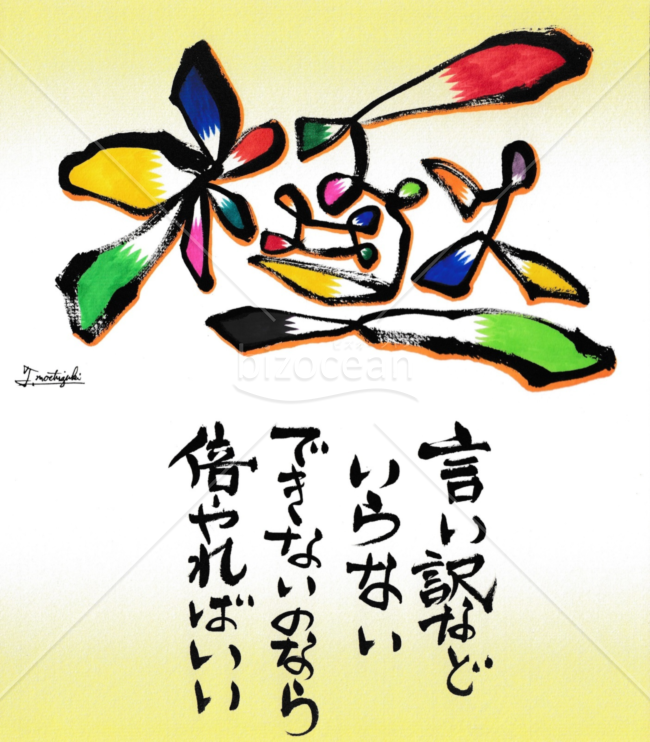 極
J.mochizuki
bizocean
言い訳など
いらない
できないのなら
倍やればいい